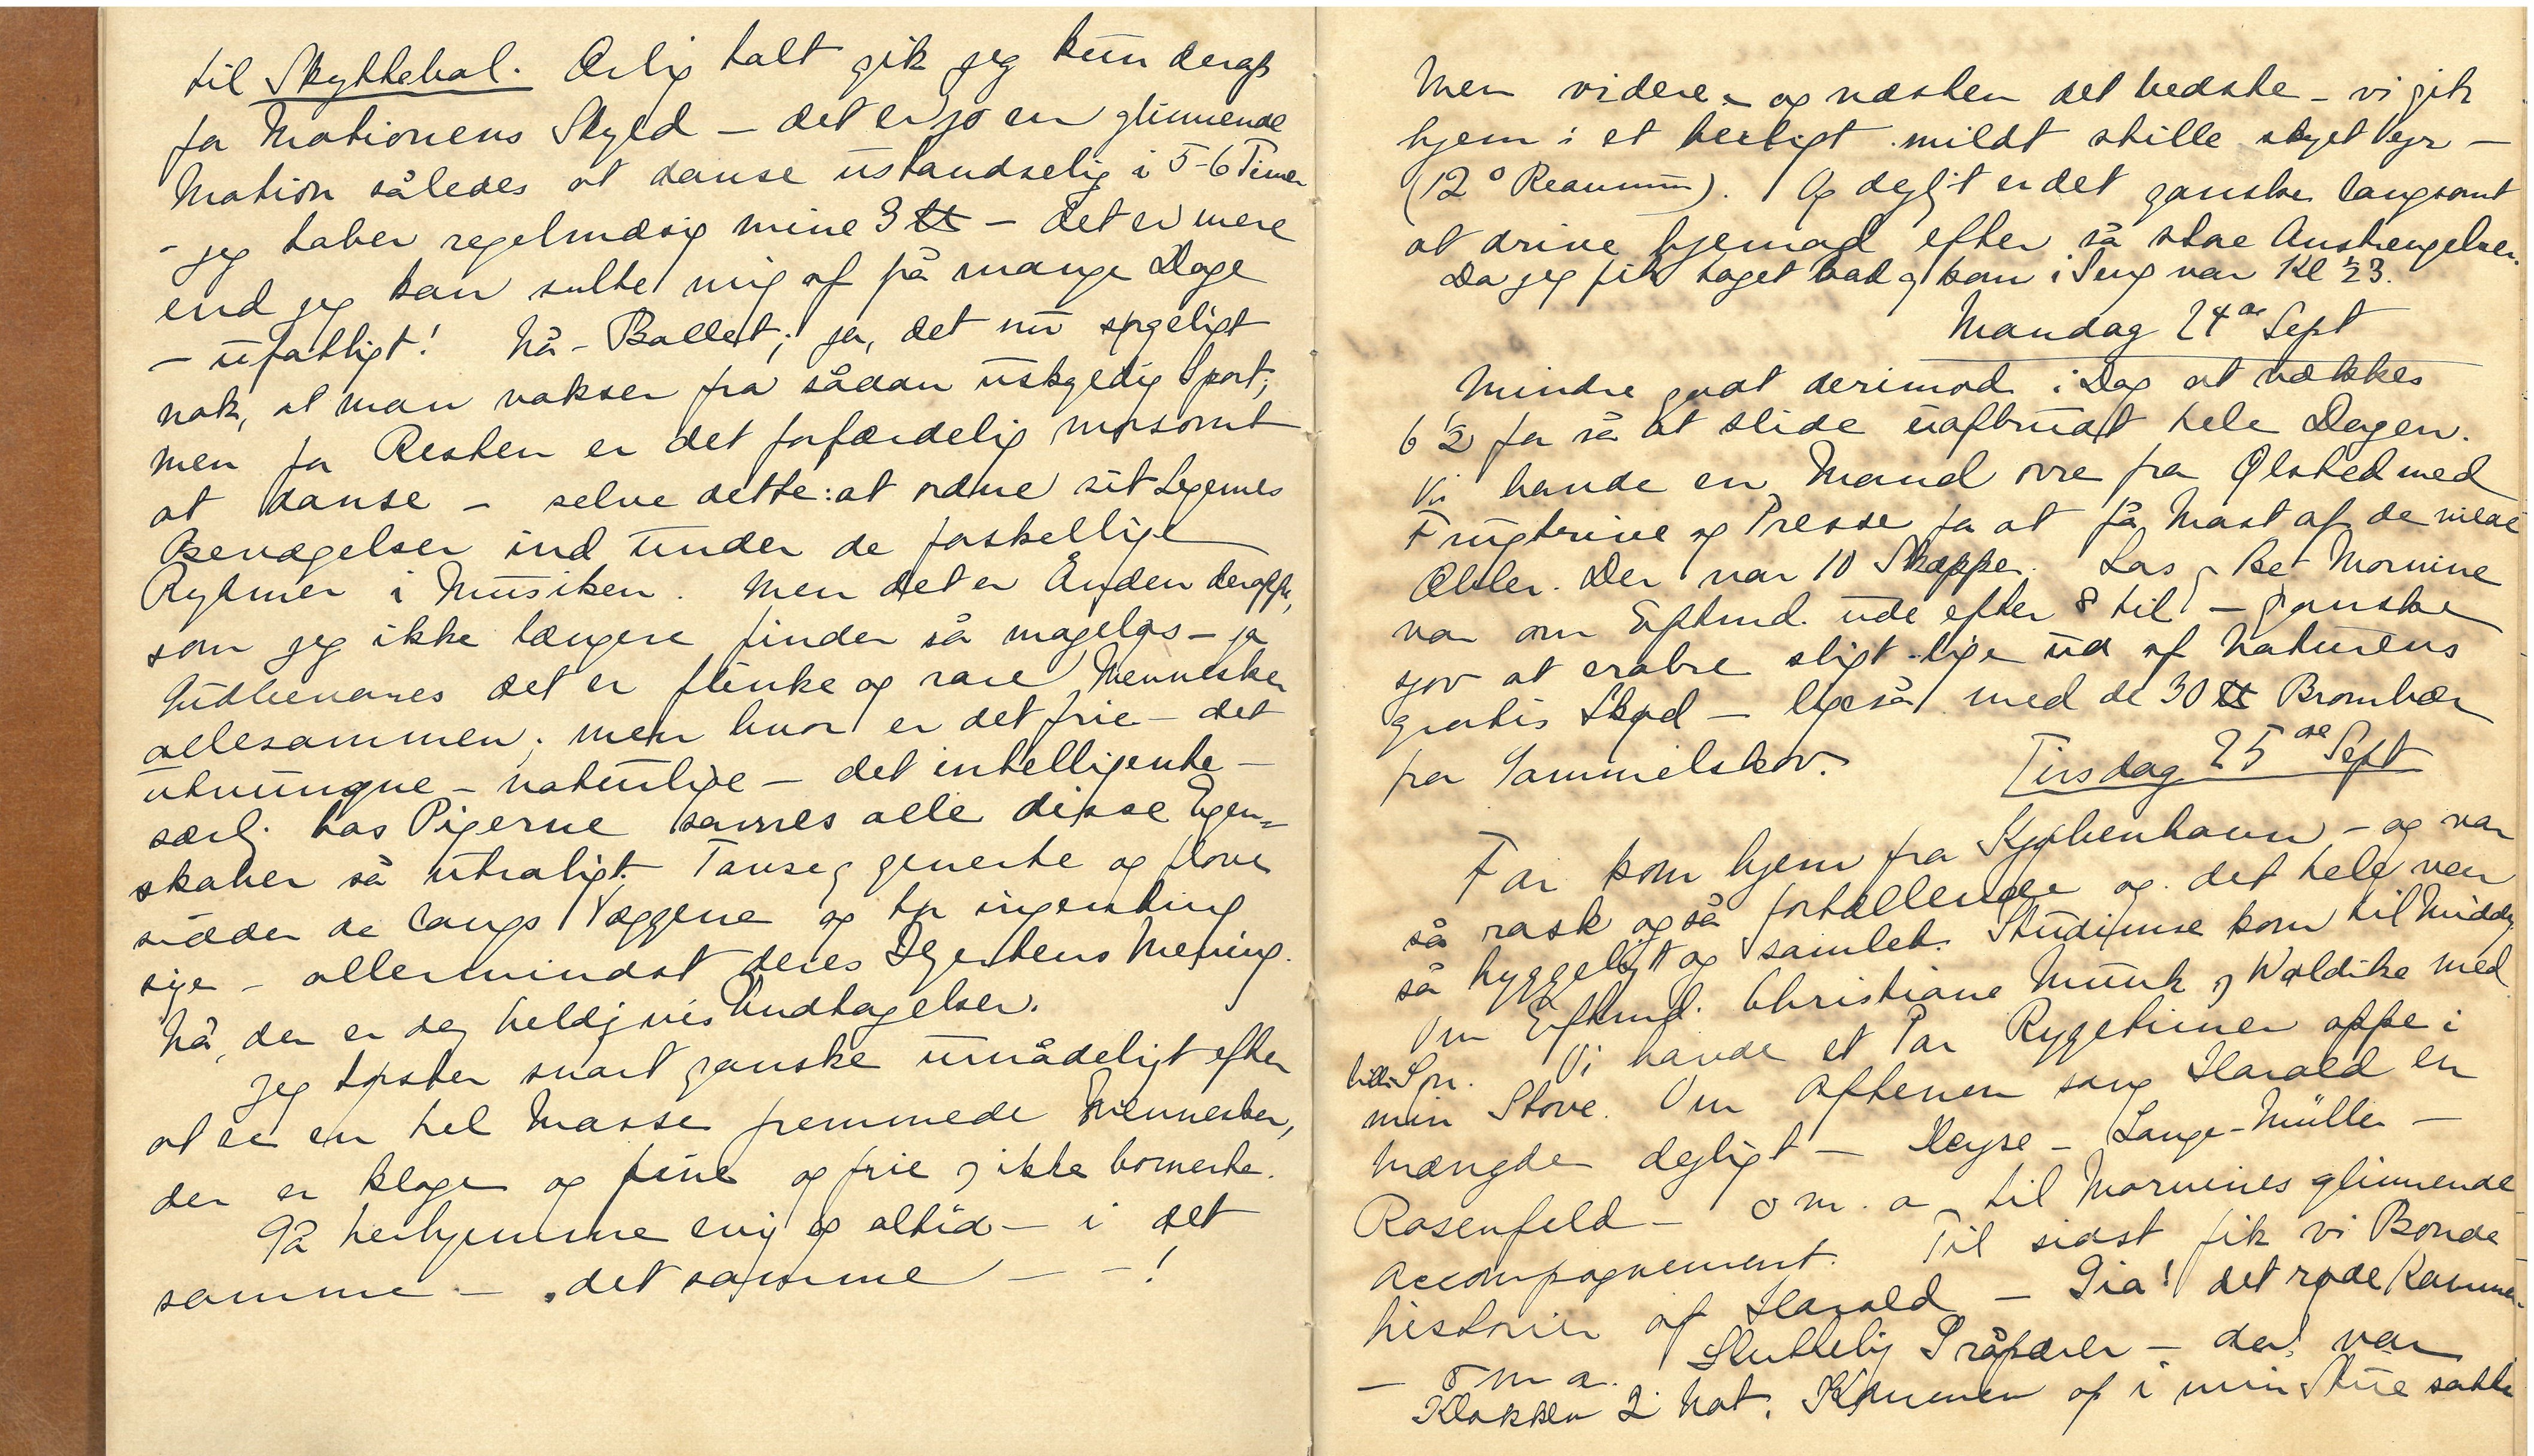 til Skyttebal. Ærlig talt gik jeg kun derop
for Motionens Skyld – det er jo en glimrende
Motion således at danse ustandselig i 5-6 Timer
– jeg taber regelmæsig mine 3 ℔ – det er mere
end jeg kan sulte mig af på mange Dage
– ufatligt! Nå – Ballet; ja, det nu sørgeligt
nok, at man vokser fra sådan uskyldig Sport;
men for Resten er det forfærdelig morsomt
at danse – selve dette: at ordne sit Legemes
Bevægelser ind under de forskellige
Rytmer i Musiken. Men det er Ånden deroppe,
som jeg ikke længere finder så mageløs – ja
Gudbevares det er flinke og rare Mennesker
allesammen; men hvor er det frie – det
utvungne – naturlige – det intelligente –
særl. hos Pigerne savnes alle disse Egen=
skaber så utroligt. Tavse, generte og flove
sidder de langs Væggene og tør ingenting
sige – allermindst deres Hjertens Mening.
Nå, der er dog heldigvis Undtagelser.
Jeg tørster snart ganske umådeligt efter
at se en hel Masse fremmede Mennesker,
der er kloge og fine og frie og ikke bornerte.
Gå herhjemme evig og altid – i det
samme – det samme – – !
Men videre – og næsten det bedste – vi gik
hjem i et herligt mildt stille skyet Vejr –
(12° Reaumur). Og dejligt er det ganske langsomt
at drive hjemad efter så store Anstrengelser.
Da jeg fik taget bad og kom i Seng var Kl ½3.
Mandag 24de Sept
Mindre godt derimod i Dag at vækkes
6½ for så at slide uafbrudt hele Dagen.
Vi havde en Mand ovre fra Ølsted med
Frugtrive og Presse for at få Most af de vilde
Æbler. Der var 10 Skæpper. Las og Be Mornine
var om Eftmd. ude efter 8 til – ganske
sjov at erobre sligt lige ud af Naturens
gratis Skød – ligeså med de 30 ℔ Brombær
fra Sammelskov.
Tirsdag 25de Sept
Far kom hjem fra Kjøbenhavn – og var
så rask og så fortællende og det hele var
så hyggeligt og samlet. Studimse kom til Middg.
Om Eftmd. Christiane Munk og Woldike med
lille Søn. Vi havde et Par Rygetimer oppe i
min Stove. Om Aftenen sang Harald en
Mængde dejligt – Heyse – Lange-Müller –
Rosenfeld – o m. a – til Mornines glimrende
Accompagnement. Til sidst fik vi Bonde
historier af Harald – Gia! det røde Kammer
– o m a. Sluttelig Pråpærer – der var
Klokken 2 Nat. Kommen op i min Stue satte